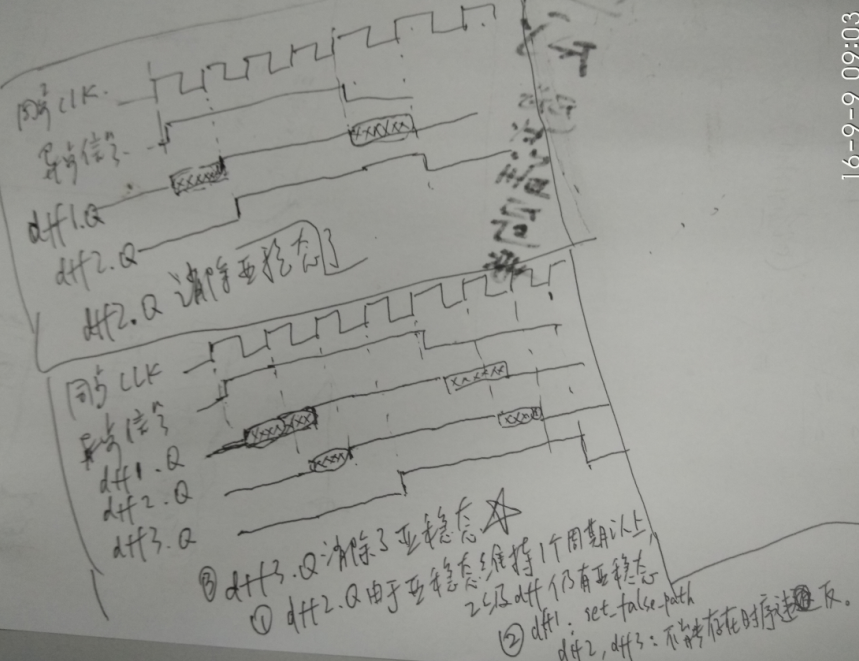 同步CLK
异步信号
xxxxx
xxxxxx
dff1.Q
dff2.Q
dff2.Q 消除亚稳态了
同步CLK
异步信号
xxxxxxx
xxxxxx
dff1.Q
xxxx
xxxx
dff2.Q
dff3.Q
③ dff3.Q消除了亚稳态☆
① dff2.Q由于亚稳态维持1个周期以上,
2级dff仍有亚稳态
② dff1: set_false_path
dff2, dff3: 不能存在时序违反。
16-9-9 09:03